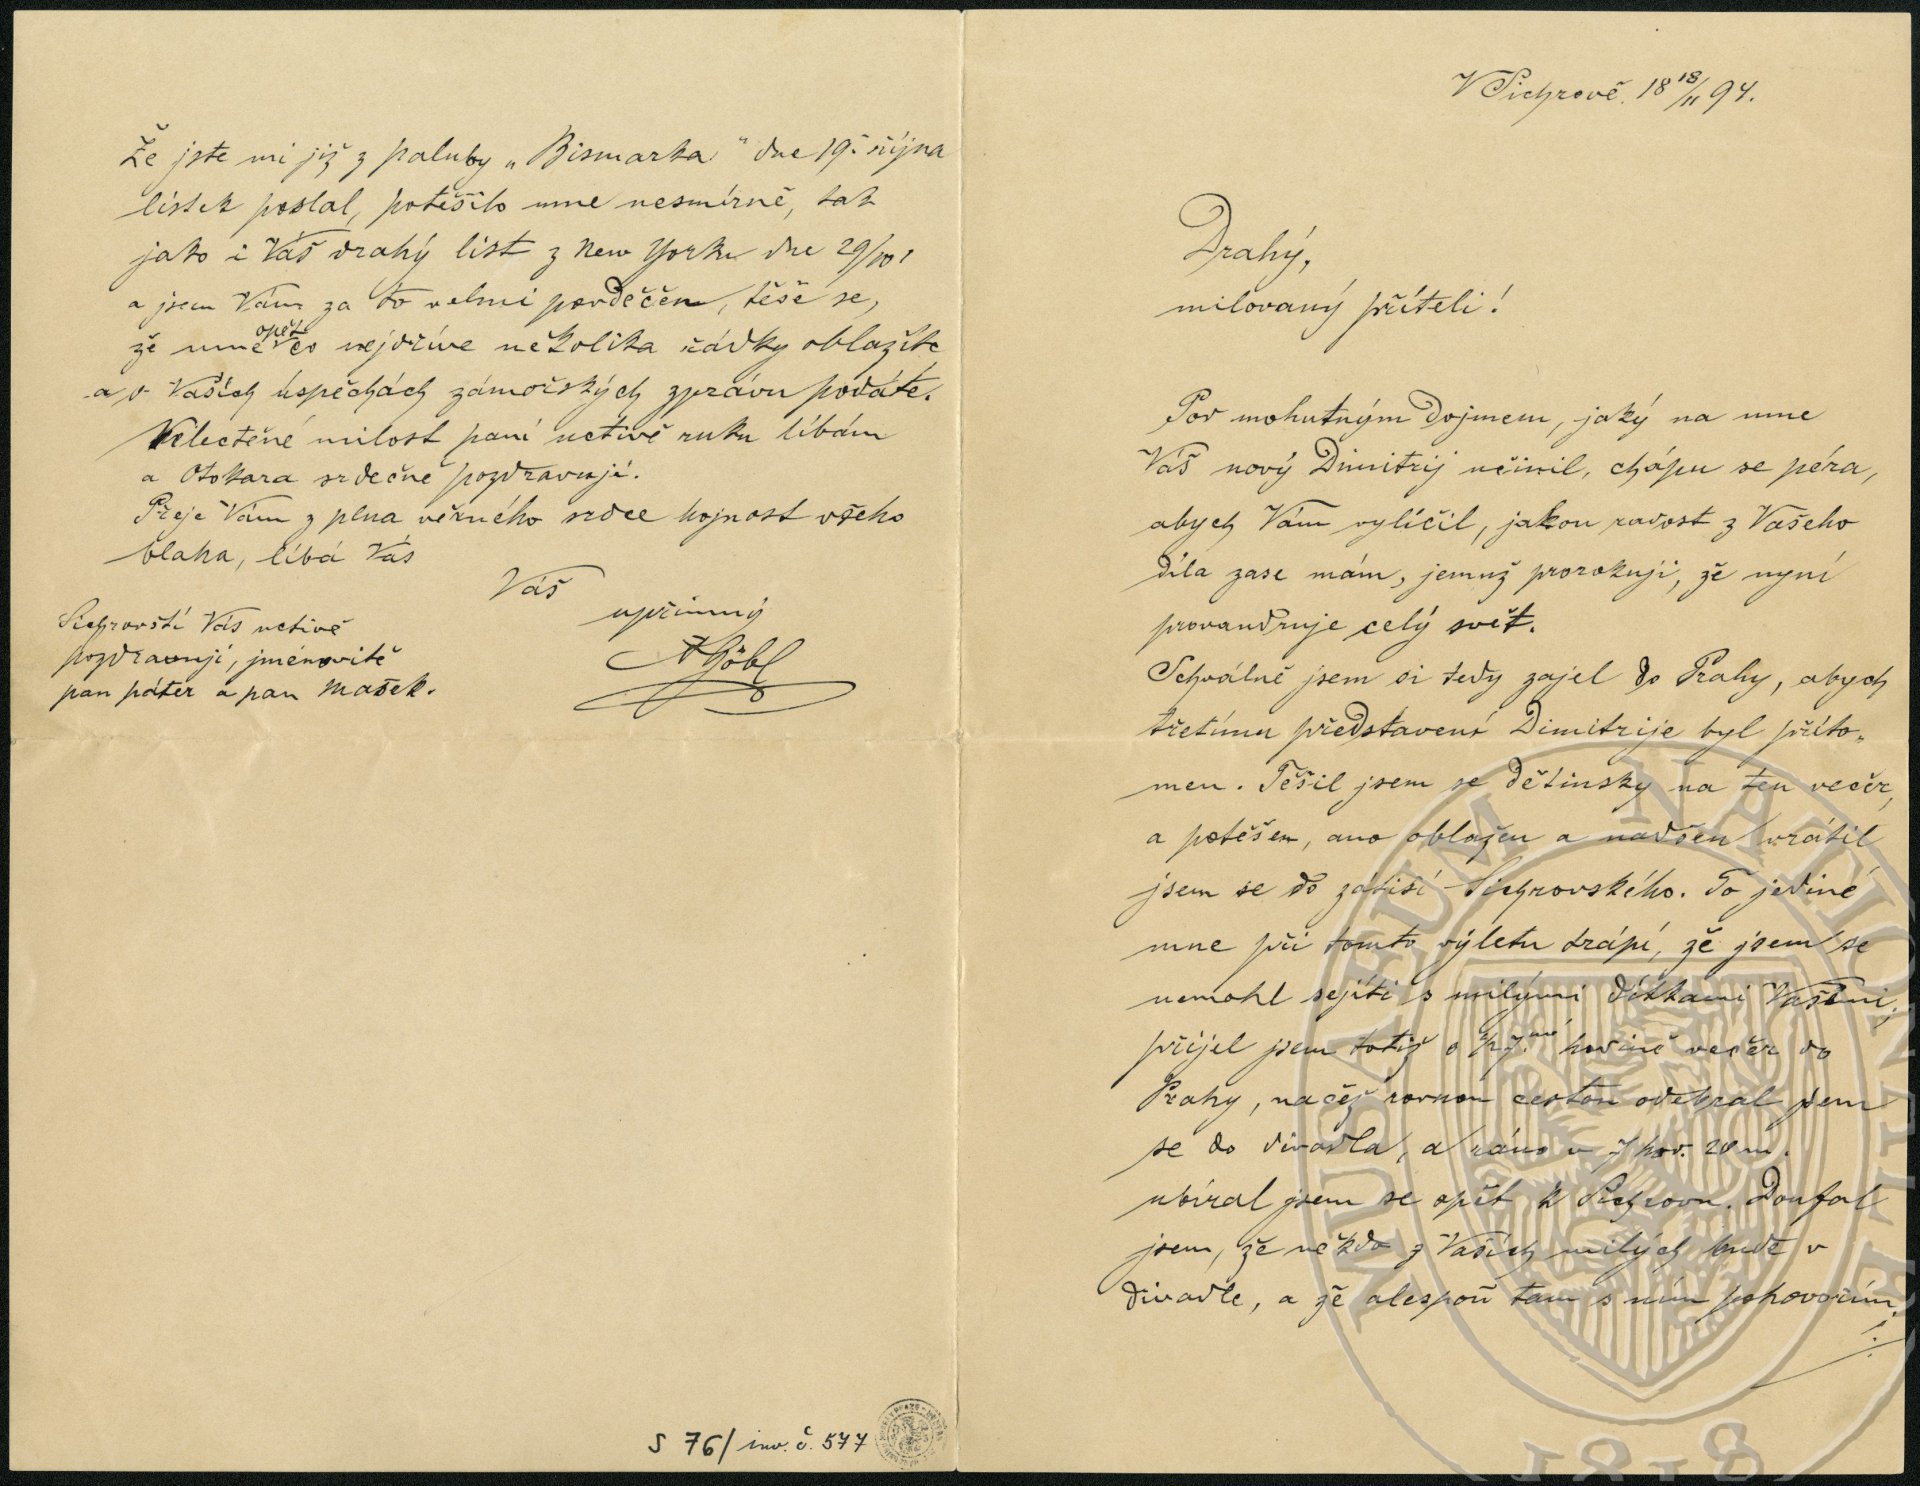 Že jste mi již z paluby „Bismarka" dne 19. října
lístek poslal, potěšilo mne nesmírně, tak
jako i Váš drahý list z New Yorku dne 29/10.
a jsem Vám za to velmi povděčen, těše se,
opět
že mne co nejdříve několika řádky oblažíte
a o Vašich úspěchách zámořských zprávu podáte.
Velectěné milost paní uctivě ruku líbám
a Otokara srdečně pozdravuji.
Přeje Vám z plna věrného srdce hojnost všeho
blaha, líbá Vás
Váš
upřimný
A Göbl
Sichrovští Vás uctivě
pozdravují, jmenovitě
pan páter a pan Mašek.
S 76/ inv. č. 577
V Sichrově. 18 18/11 94.
Drahý,
milovaný příteli!
Pod mohutným dojmem, jaký na mne
Váš nový Dimitrij učinil, chápu se péra,
abych Vám vylíčil, jakou radost z Vašeho
díla zase mám, jemuž prorokuji, že nyní
provandruje celý svět.
Schválně jsem si tedy zajel do Prahy, abych
třetímu představení Dimitrije byl příto-
men. Těšil jsem se dětinsky na ten večer,
a potěšen, ano oblažen a nadšen vrátil
jsem se do zátiší Sichrovského. To jediné
mne při tomto výletu trápí, že jsem se
nemohl sejíti s milými dítkami Vašimi,
přijel jsem totiž o 1/2 7.mé hodině večer do
Prahy, načež rovnou cestou odebral jsem
se do divadla, a ráno v 7 hod. 20 m.
ubíral jsem se opět k Sichrovu. Doufal
jsem, že někdo z Vašich milých bude v
divadle, a že alespoň tam s ním pohovořím.
MUSAEUM NATIONALE
1818